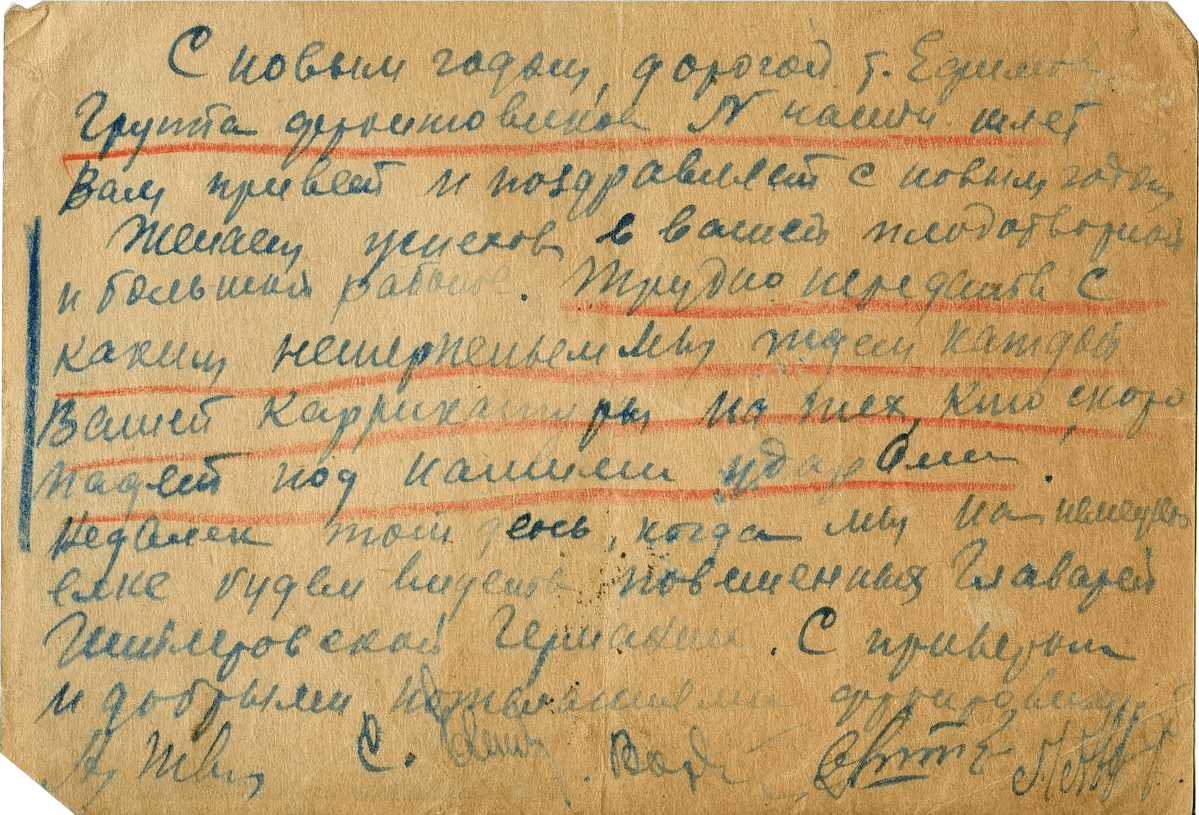 С новым годом, дорогой т. Ефимов!
Группа фронтовиков N части шлет
Вам привет и поздравляет с новым годом
Желаем успехов в вашей плодотворной
и большой работе. Трудно передать с
каким нетерпеньем мы ждем каждой
Вашей каррикатуры на тех, кто скоро
падет под нашими ударами.
Недалек тот день, когда мы на немецкой
елке будем видеть повешенных главарей
Гитлеровской Германии. С приветом
и добрыми пожеланиями фронтовики
С.